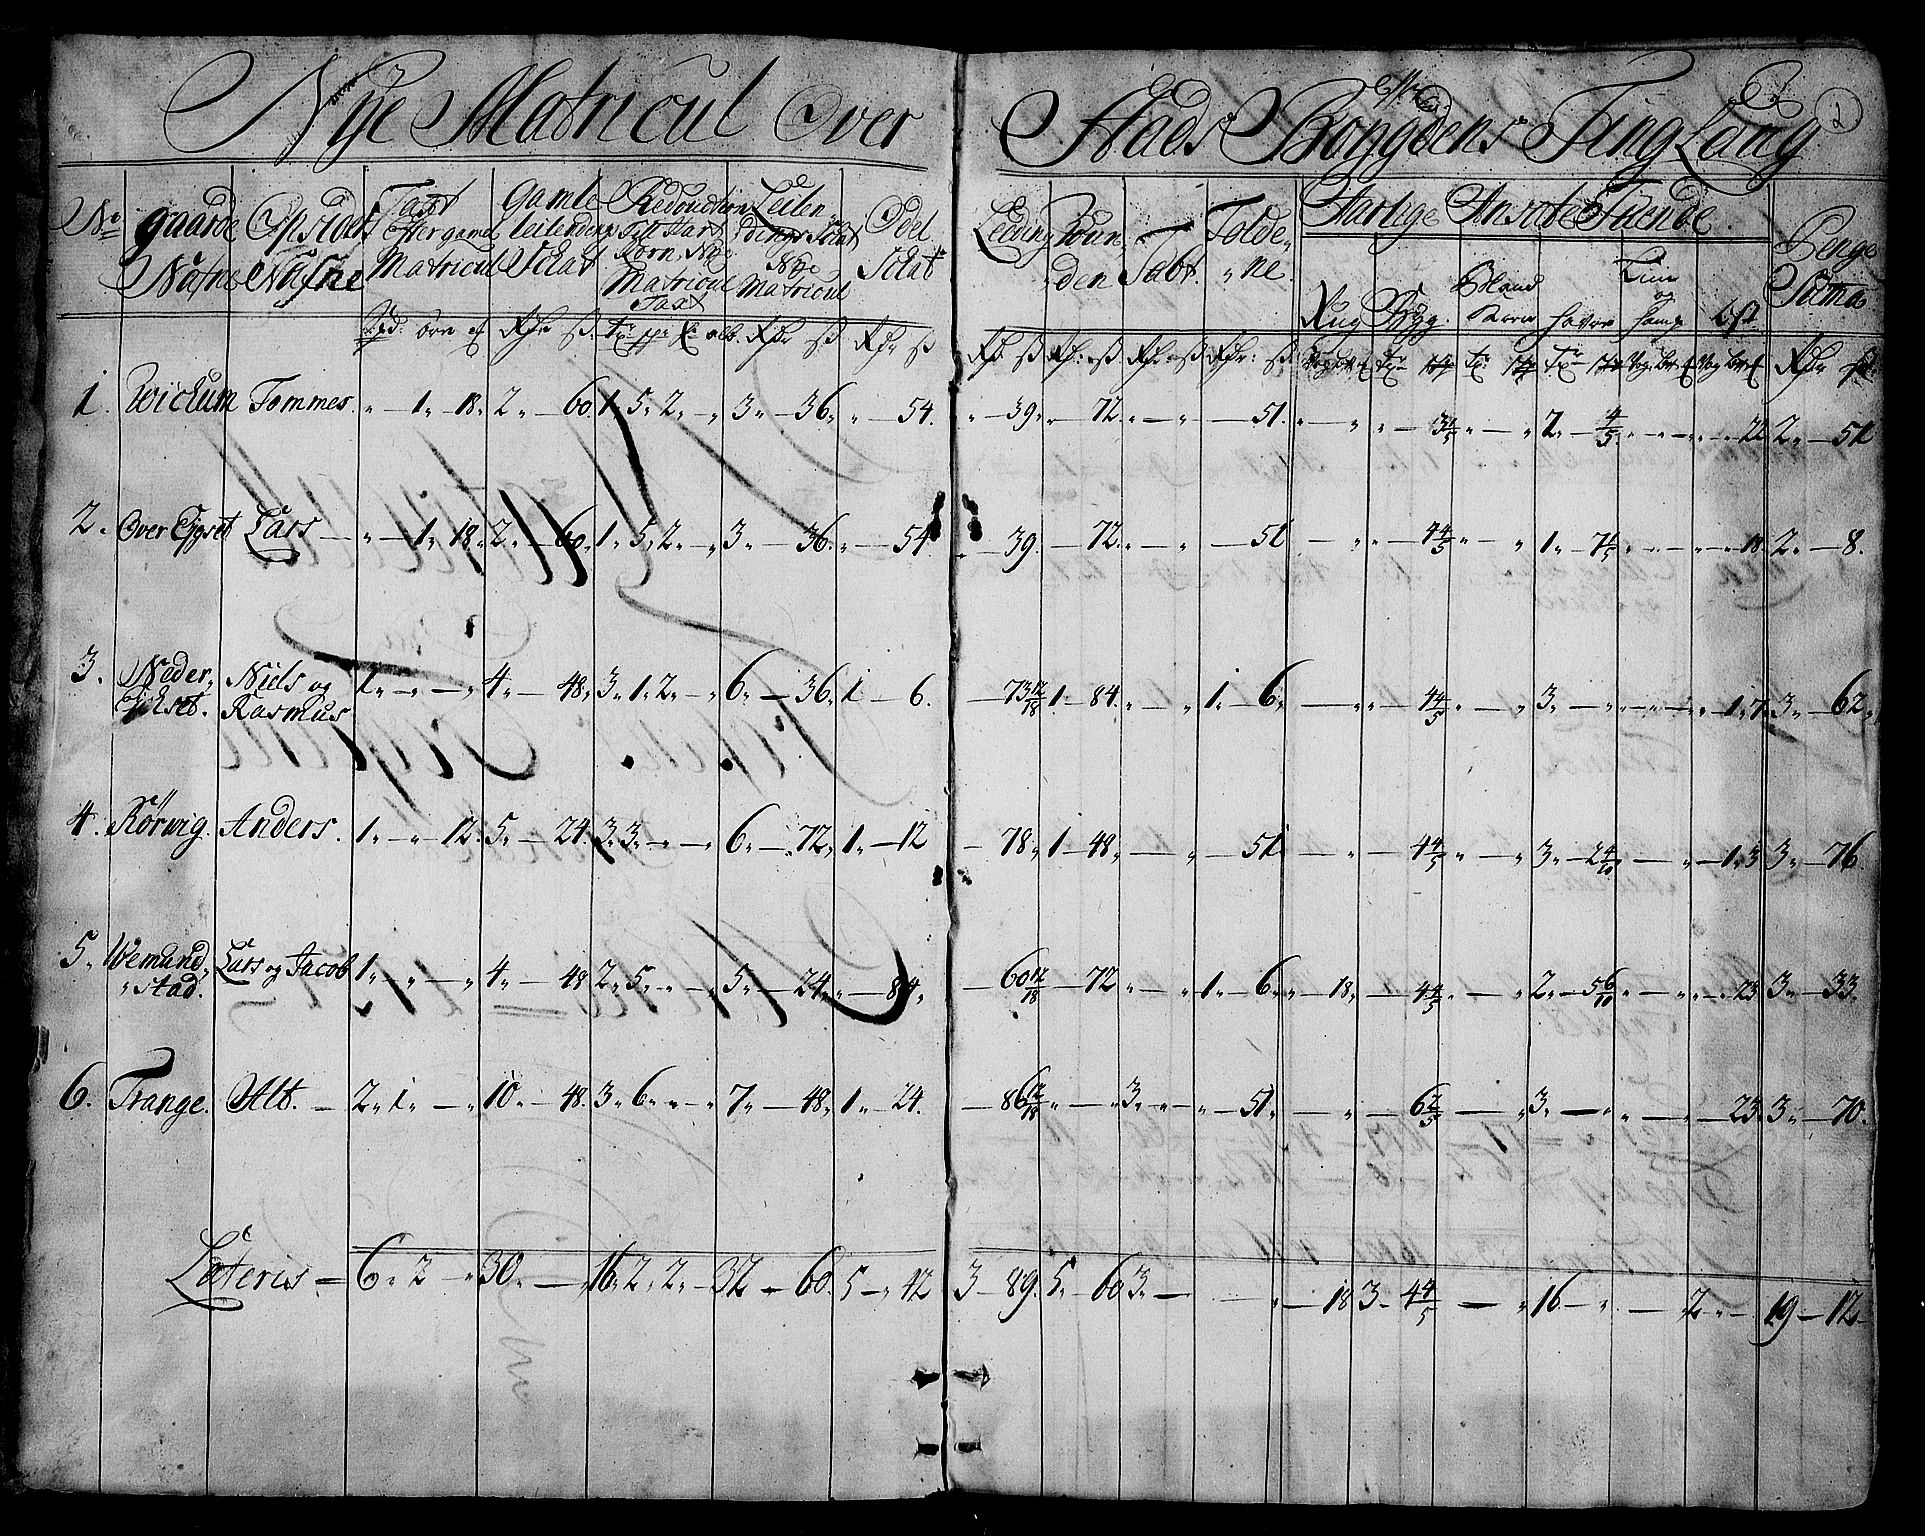 Nÿe Matricul Over Stads Boÿgdens Ting Laug 2
No gaarde Nafne Opsidd Nafne Taxt Efter gamel Matricul Gamle Leilendings Schat Redouction Till Hart Korn, Nÿe Matricul Taxt Leilendings Schat Nÿe Matricul Odel Schat Leding Wounden Tabt. Foldene. Aarlige Ansatte Tiende Penge Suma
Rug Bÿg. Bland Korn hafre Liin og hamp ost
1. Wichum Tommes. „ — 1„ 18„ 2„ — 60„ 1„ 5„ 2„ „ 3„ — 36„ „ — 54. „ — 39„ „ — 72. „ — „ — 51. „ — „ „ — 3 1/5 „ — „ 2„ — 4/5 „ — „ — „ — 22 2„ — 51
2. Over Ejgset Lars — „ — 1„ 18„ 2„ — 60„ 1„ 5„ 2„ — „ 3„ — 36„ „ — 54. „ — 39. — 72„ „ — „ — 51 — „ — 4 4/5 „ — „ 1„ — 7 1/5 „ — „ — „ — 18. 2„ — 8.
3. Neder„ Ejgset. Niels og Rasmus 1„ — „ — „ 4„ — 48„ 3„ 1„ 2„ — „ 6„ — 36„ 1 — 6. — 73 12/18 1 — 84. „ — „ 1„ — 6„ — „ — 4 4/5 „ — „ 3„ — „ — „ — 1„ 7„ 3„ — 62„
4. Rörwig. Anders. 1„ — „ 12„ 5„ — 24. 3„ 3„ — „ — „ 6„ — 72„ 1„ — 12 — 78„ 1 — 48„ — „ — 51 — „ — 4 4/5 „ — „ 3„ — 2 4/10 — „ — 1„ 3 3„ — 76
5„ Wemund„ „stad. Lars og Jacob 1„ — „ — „ 4„ — 48 2„ 5„ — „ — „ 5„ — 24„ „ — 84„ — 60 12/18 — 72 „ — „ 1„ — 6„ „ — 18„ — 4 4/5 „ — „ 2„ — 5 6/10 „ — „ — 23 3„ — 33.
6. Trange. Alt. — 2„ 1„ — „ 10 — 48. 3„ 6„ „ — „ 7„ — 48„ 1„ — 24. — 86 12/18 „ — „ 3„ — „ — „ — 51„ — „ — 6 2/5 — „ 3„ — „ „ — „ — 23. 3„ — 70.
Lateris — 6„ 2 — „ 30„ — „ 16„ 2„ 2„ — 32 — 60. 5 — „ 42 3 — 89. 5„ — 60 3„ — „ — 18 3 — 4 4/5 — „ 16 — „ — 2„ — 19 — 12.